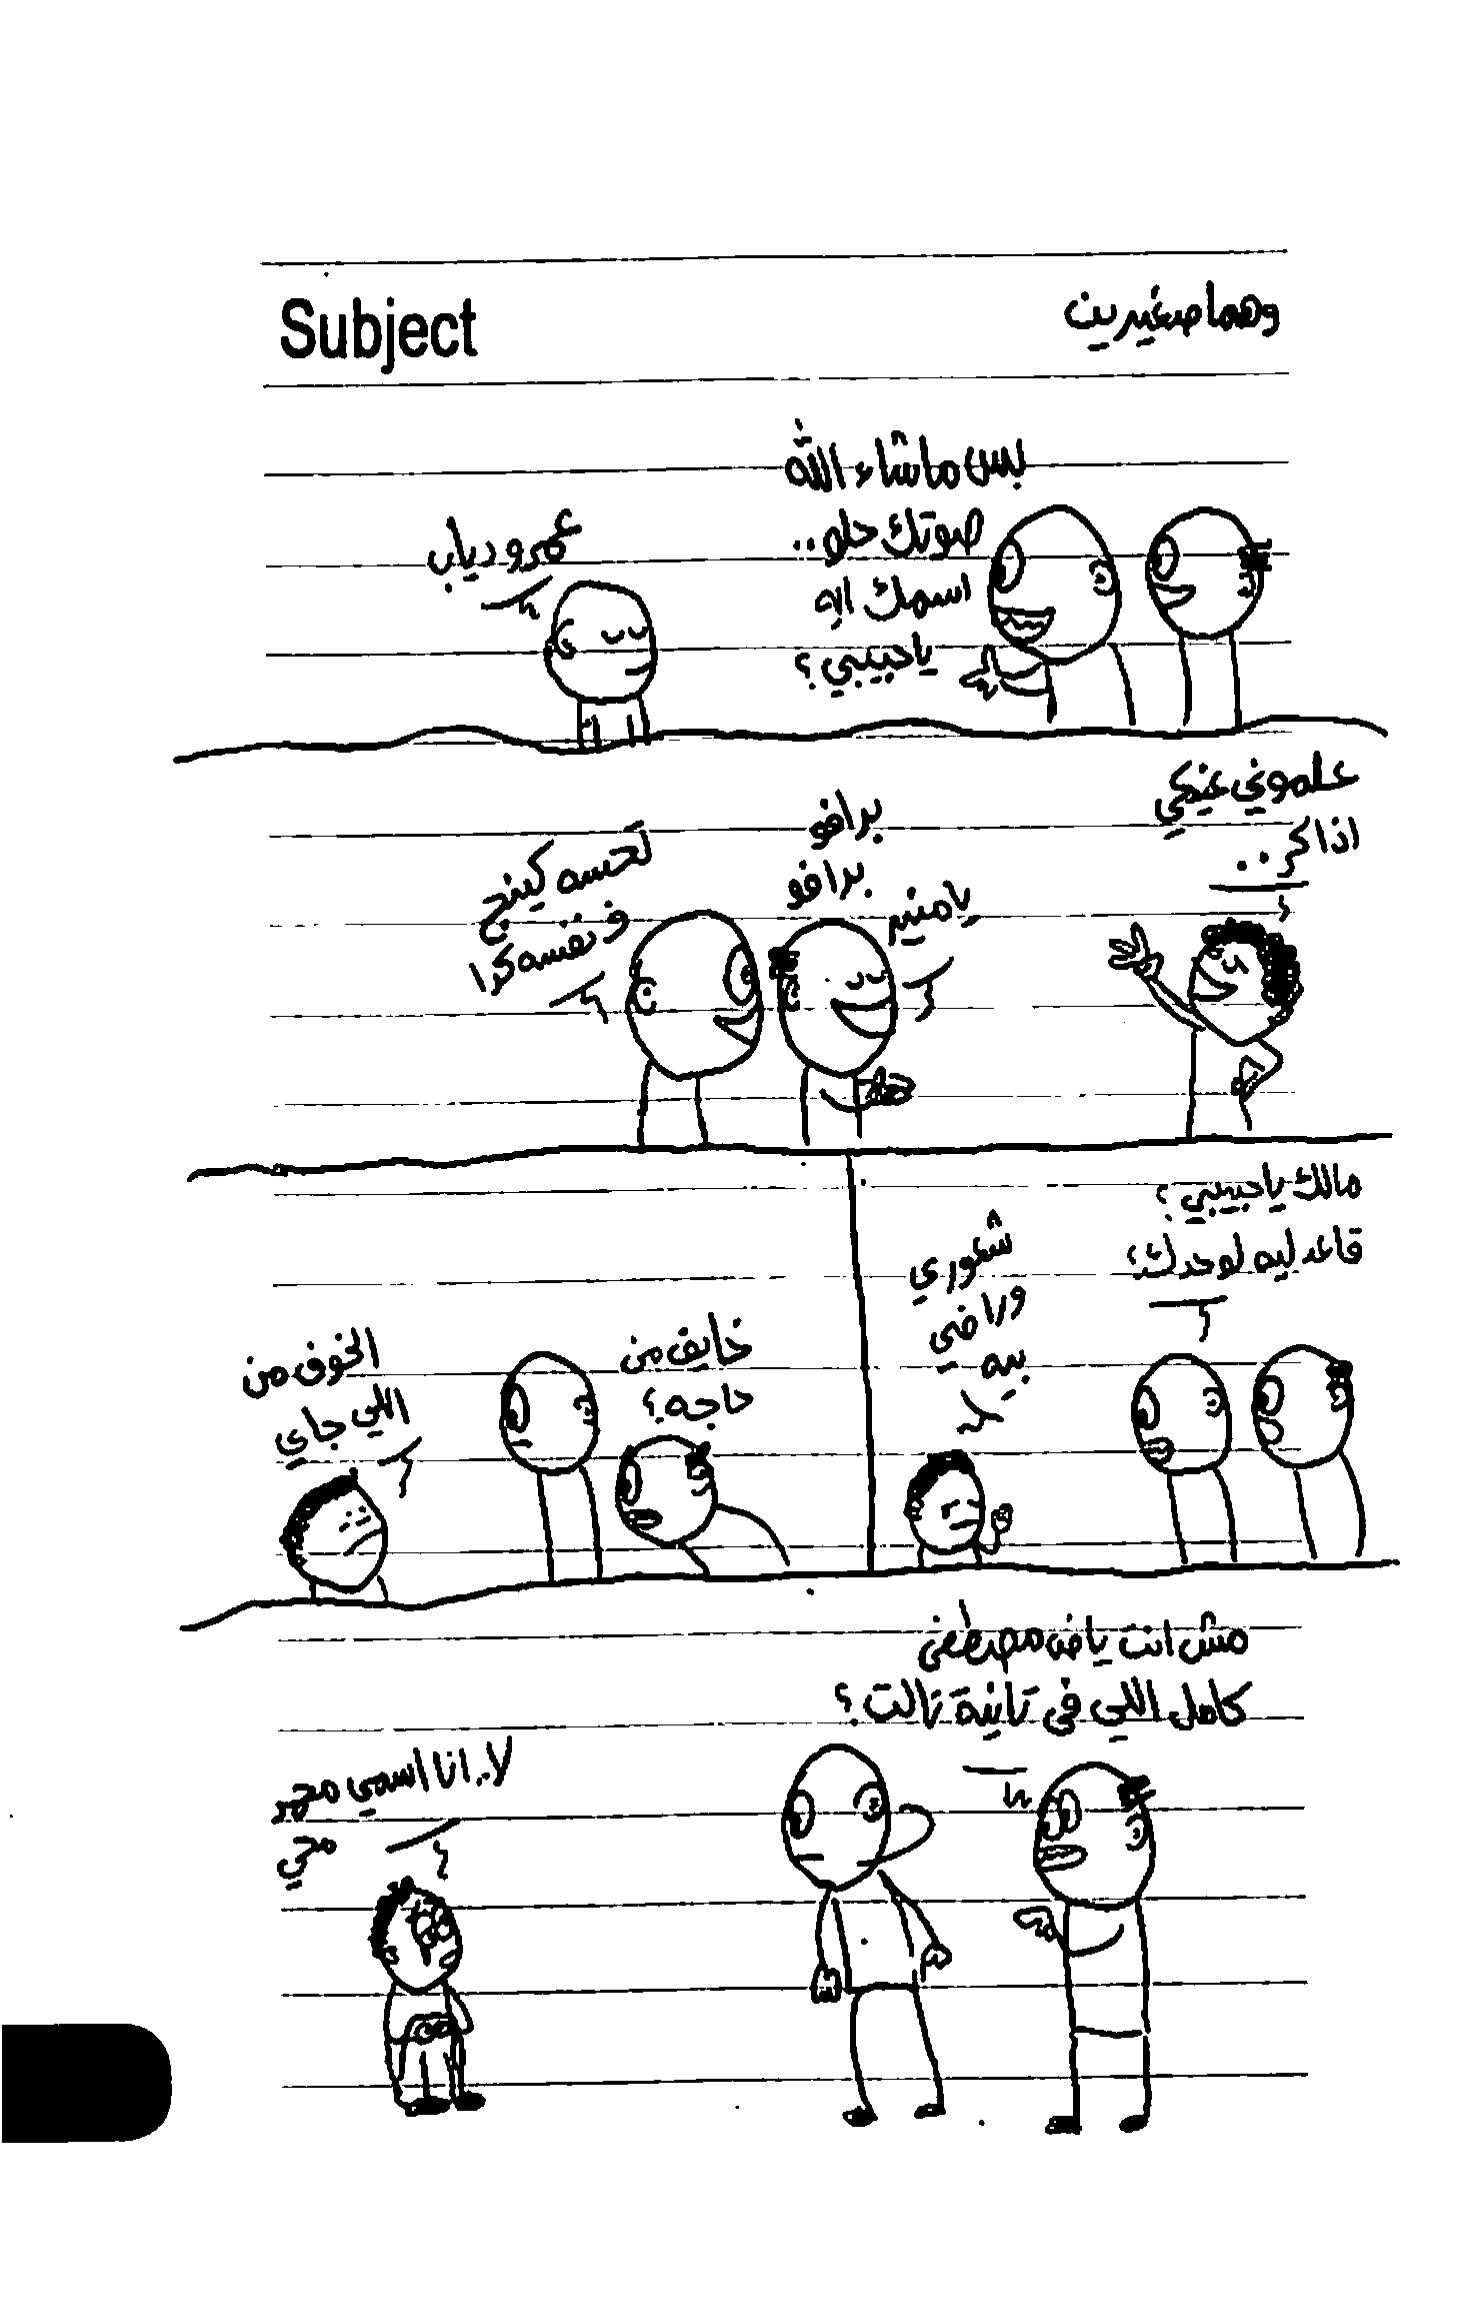 Subject
وهما صغيرين
بس ما شاء الله
صوتك حلو..
اسمك ايه
يا حبيبي؟
عمرو دياب
علموني عنيكي
اذاكر..
برافو
برافو
يا منير
تحسه كينج
ف نفسه كدا
مالك يا حبيبي؟
قاعد ليه لوحدك؟
شعوري
وراضي
بيه
خايف من
حاجه؟
الخوف من
اللي جاي
مش انت ياض مصطفى
كامل اللي في تانية تالت؟
لا.. انا اسمي محمد
محي